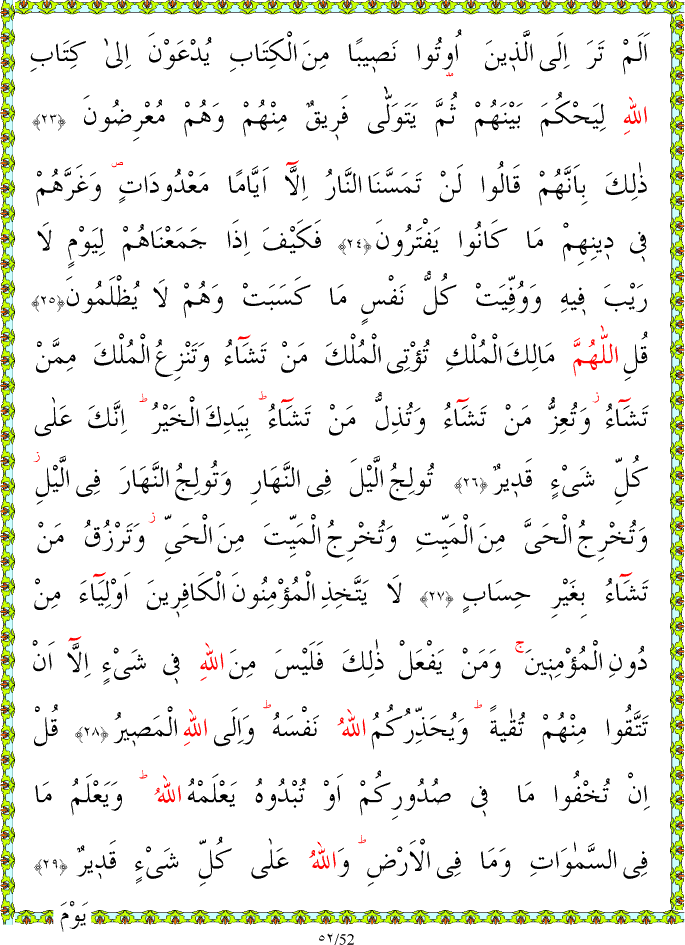 اَلَمْ تَرَ اِلَى الَّذ۪ينَ اُو۫تُوا نَص۪يبًا مِنَ الْكِتَابِ يُدْعَوْنَ اِلٰى كِتَابِ
اللّٰهِ لِيَحْكُمَ بَيْنَهُمْ ثُمَّ يَتَوَلّٰى فَر۪يقٌ مِنْهُمْ وَهُمْ مُعْرِضُونَ ﴿٢٣﴾
ذٰلِكَ بِاَنَّهُمْ قَالُوا لَنْ تَمَسَّنَا النَّارُ اِلَّٓا اَيَّامًا مَعْدُودَاتٍۖ وَغَرَّهُمْ
ف۪ي د۪ينِهِمْ مَا كَانُوا يَفْتَرُونَ ﴿٢٤﴾ فَكَيْفَ اِذَا جَمَعْنَاهُمْ لِيَوْمٍ لَا
رَيْبَ ف۪يهِ وَوُفِّيَتْ كُلُّ نَفْسٍ مَا كَسَبَتْ وَهُمْ لَا يُظْلَمُونَ ﴿٢٥﴾
قُلِ اللّٰهُمَّ مَالِكَ الْمُلْكِ تُؤْتِي الْمُلْكَ مَنْ تَشَٓاءُ وَتَنْزِعُ الْمُلْكَ مِمَّنْ
تَشَٓاءُۘ وَتُعِزُّ مَنْ تَشَٓاءُ وَتُذِلُّ مَنْ تَشَٓاءُۜ بِيَدِكَ الْخَيْرُۜ اِنَّكَ عَلٰى
كُلِّ شَيْءٍ قَد۪يرٌ ﴿٢٦﴾ تُولِجُ الَّيْلَ فِي النَّهَارِ وَتُولِجُ النَّهَارَ فِي الَّيْلِۘ
وَتُخْرِجُ الْحَيَّ مِنَ الْمَيِّتِ وَتُخْرِجُ الْمَيِّتَ مِنَ الْحَيِّۘ وَتَرْزُقُ مَنْ
تَشَٓاءُ بِغَيْرِ حِسَابٍ ﴿٢٧﴾ لَا يَتَّخِذِ الْمُؤْمِنُونَ الْكَافِر۪ينَ اَوْلِيَٓاءَ مِنْ
دُونِ الْمُؤْمِن۪ينَۚ وَمَنْ يَفْعَلْ ذٰلِكَ فَلَيْسَ مِنَ اللّٰهِ ف۪ي شَيْءٍ اِلَّٓا اَنْ
تَتَّقُوا مِنْهُمْ تُقٰيةًۜ وَيُحَذِّرُكُمُ اللّٰهُ نَفْسَهُۜ وَاِلَى اللّٰهِ الْمَص۪يرُ ﴿٢٨﴾ قُلْ
اِنْ تُخْفُوا مَا ف۪ي صُدُورِكُمْ اَوْ تُبْدُوهُ يَعْلَمْهُ اللّٰهُۜ وَيَعْلَمُ مَا
فِي السَّمٰوَاتِ وَمَا فِي الْاَرْضِۜ وَاللّٰهُ عَلٰى كُلِّ شَيْءٍ قَد۪يرٌ ﴿٢٩﴾
يَوْمَ
٥٢/52